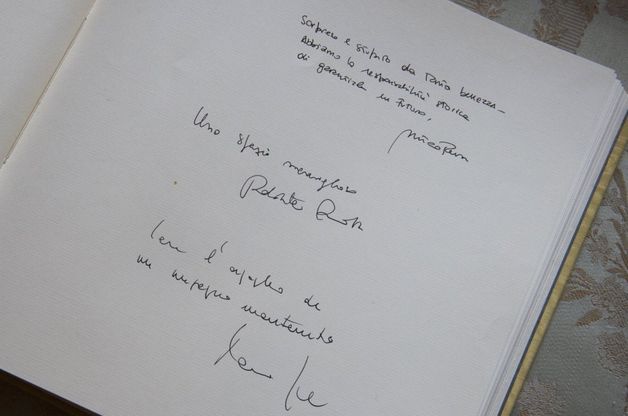 Sorpreso e stupito da tanta bellezza -
Abbiamo la responsabilità storica
di garantirla in futuro,
Uno spazio meraviglioso
con l'orgoglio di
un impegno mantenuto